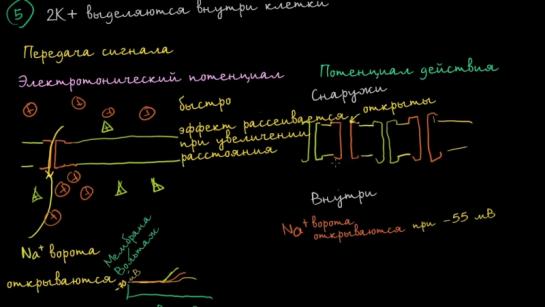 5 2K+ выделяются внутри клетки
Передача сигнала
Электротонический потенциал
Потенциал действия
быстро
эффект рассеивается
при увеличении
расстояния
Снаружи
открыты
Внутри
Na+ ворота
открываются при -55 мВ
Na+ ворота
открываются
Мембрана
Вольтаж